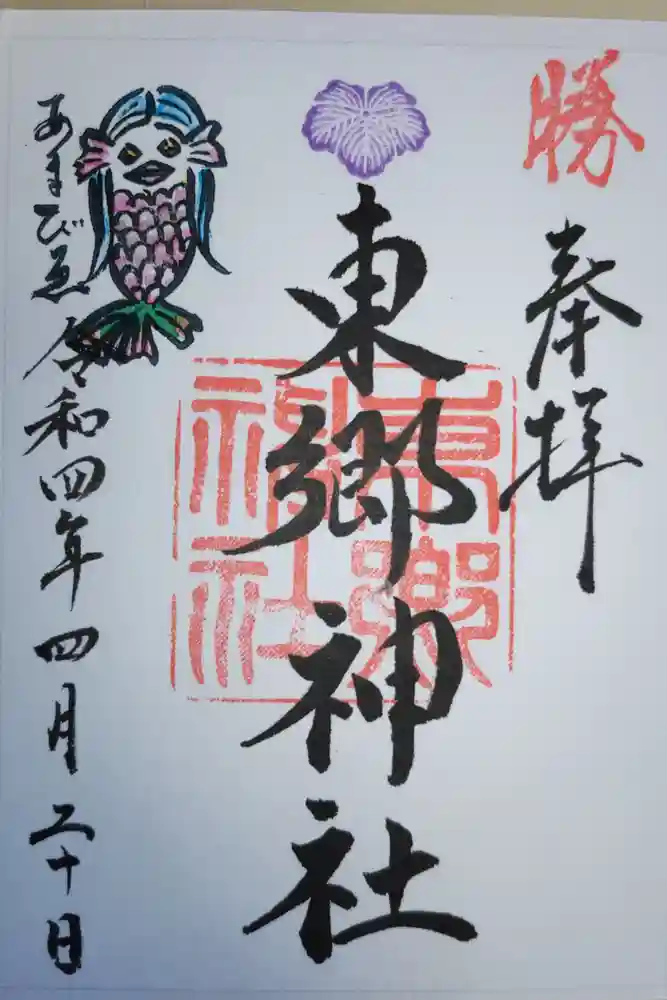 勝
奉拝
東郷神社
東郷神社
あまびゑ
令和四年四月二十日